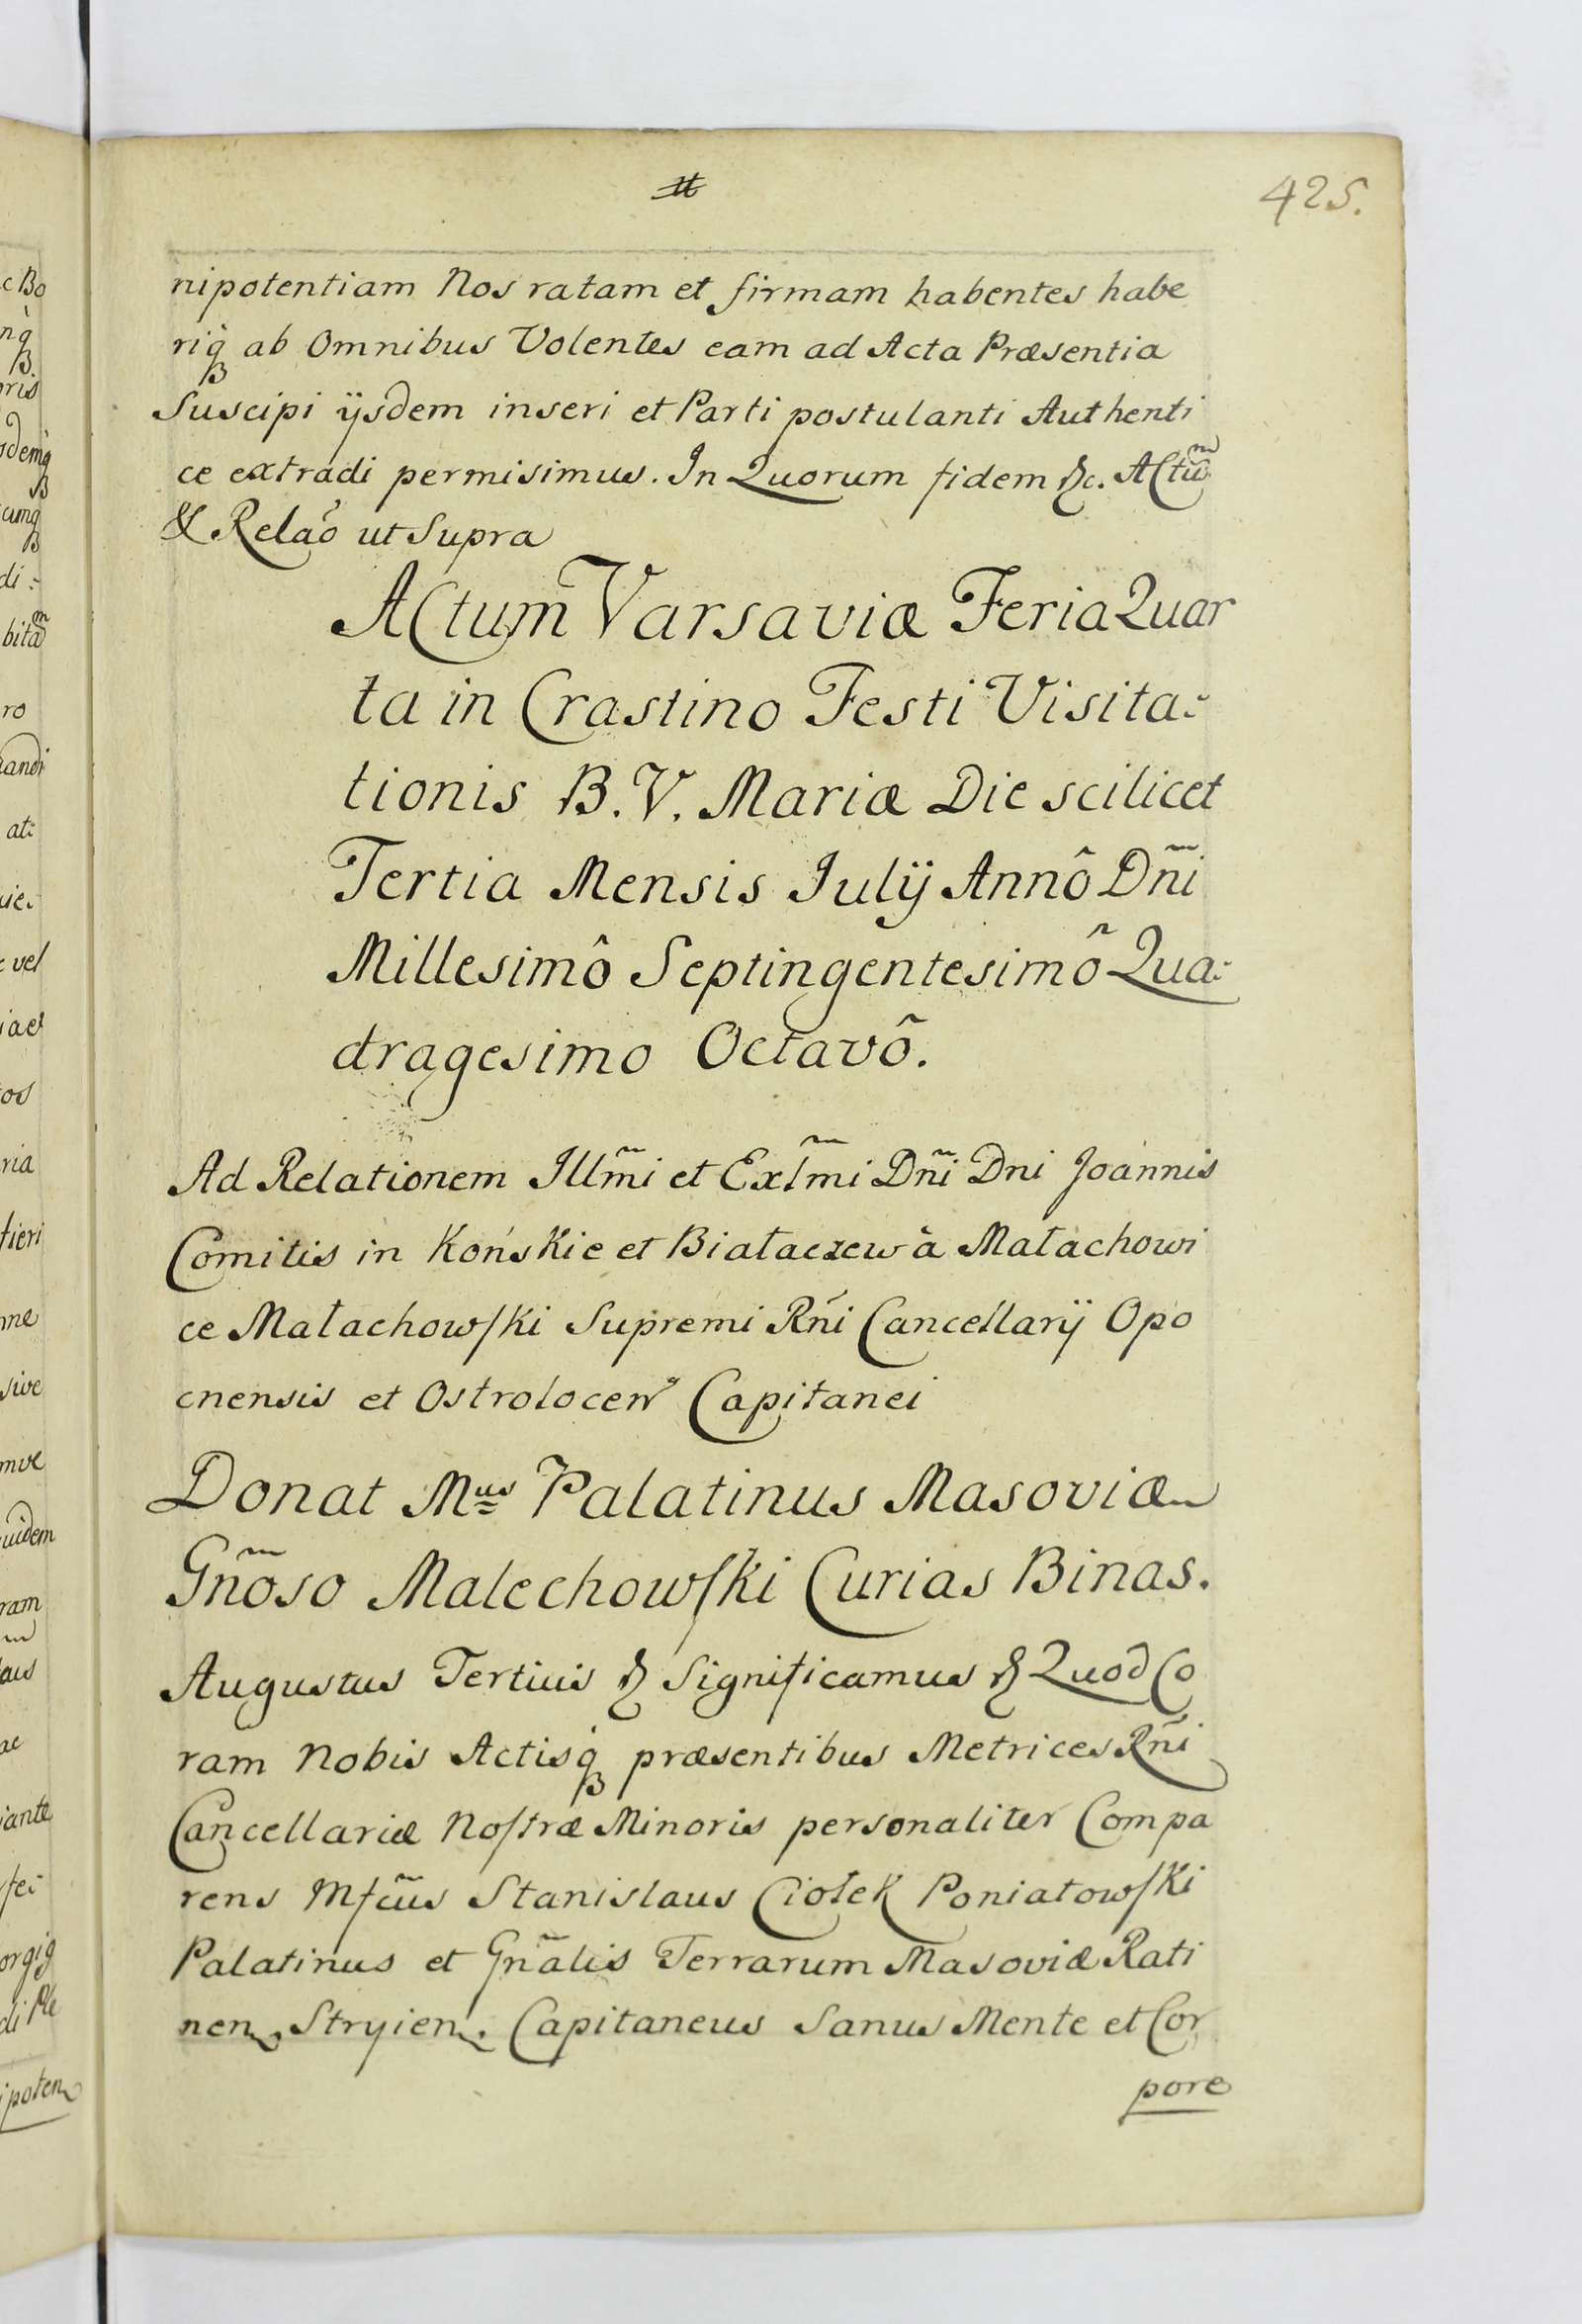 425.
nipotentiam Nos ratam et firmam habentes habe
riq̀ ab Omnibus Volentes eam ad Acta Præsentia
Suscipi ijsdem inseri et Parti postulanti Authenti
ce extradi permisimus. In Quorum fidem &c. Actũ
& Relaõ ut Supra
Actum Varsaviæ Feria Quar
ta in Crastino Festi Visita-
tionis B. V. Mariæ Die scilicet
Tertia Mensis Julÿ Annô Dñi
Millesimô Septingentesimô Qua-
dragesimo Octavô.
Ad Relationem Illm̃i et Exlm̃i Dñi Dni Joannis
Comitis in Końskie et Białaczew à Małachowi
ce Małachowski Supremi Rñi Cancellarÿ Opo
cnensis et Ostrolocen Capitanei
Donat Mus Palatinus Masoviæ
Gñoso Malechowski Curias Binas.
Augustus Tertius & Significamus & Quod Co
ram Nobis Actisq̀ præsentibus Metrices Rñi
Cancellariæ Nostræ Minoris personaliter Compa
rens Mfcũs Stanislaus Ciołek Poniatowski
Palatinus et Gñalis Terrarum Masoviæ Rati
nen, Stryien. Capitaneus Sanus Mente et Cor
pore
c Bo
pris
di-
bitã
ro
at:
vel
ria
fieri
sive
uidem
ram
iante
ipoten